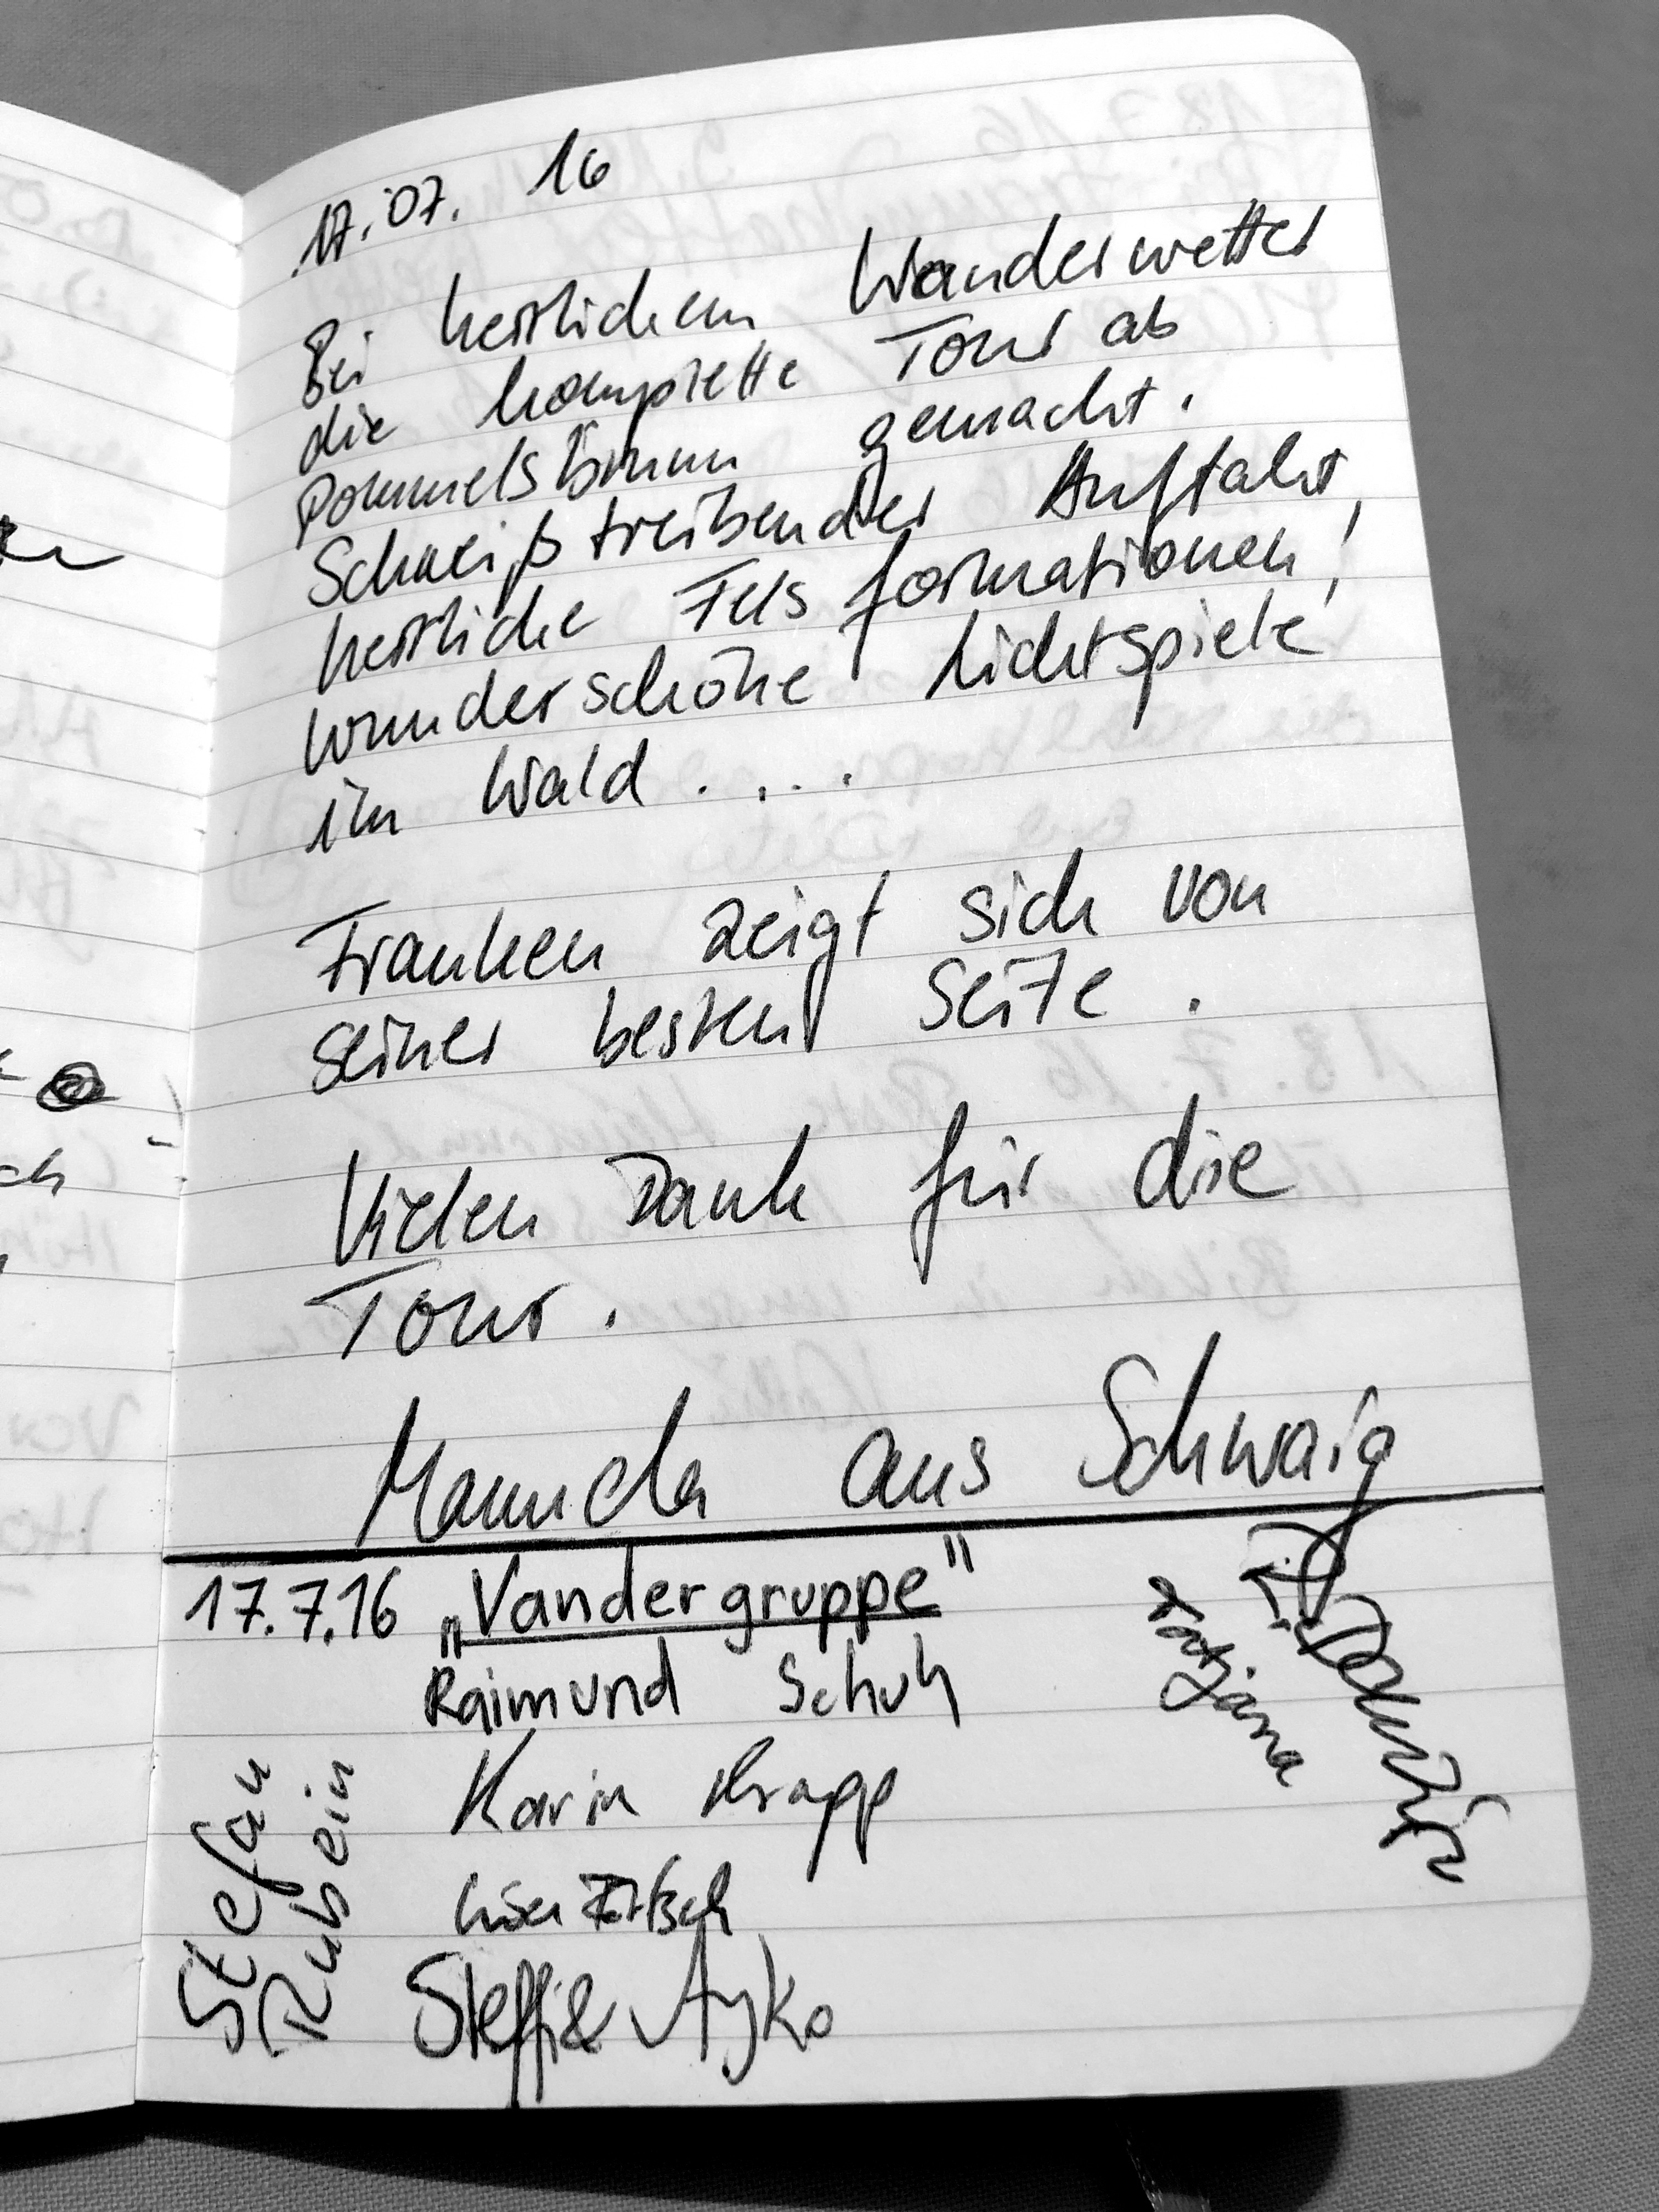 17.07. 16
Bei herrlichem Wanderwetter
die komplette Tour ab
Pommelsbrunn gemacht.
Schweißtreibender Auftakt,
herrliche Felsformationen!
wunderschöne Lichtspiele
im Wald . . . .
Franken zeigt sich von
seiner besten Seite.
Vielen Dank für die
Tour.
Manuela aus Schwaig
17.7.16 „Vandergruppe"
Raimund Schuh
Karin Krapp
Steffi & Ayko
Stefan
Rubein
Tatjana